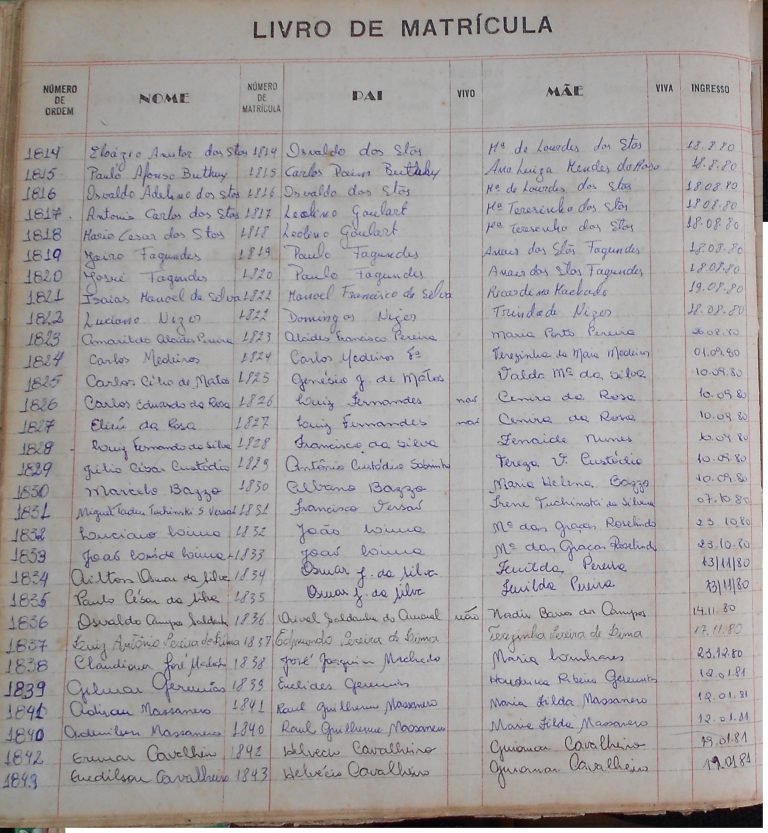 LIVRO DE MATRÍCULA
NÚMERO DE ORDEM NOME NÚMERO DE MATRÍCULA PAI VIVO MÃE VIVA INGRESSO
1814 dos Stos 1814 Osvaldo dos Stos Mª de Lourdes dos Stos 18.8.80
1815 Paulo Afonso 1815 Carlos Ana Luiza Mendes da Rosa 18.8.80
1816 Osvaldo Adelino dos Stos 1816 Osvaldo dos Stos Mª de Lourdes dos Stos 18.08.80
1817 Antonio Carlos dos Stos 1817 Leolino Goulart Mª Teresinha dos Stos 18.08.80
1818 Mario Cesar dos Stos 1818 Leolino Goulart Mª Teresinha dos Stos 18.08.80
1819 Jairo Fagundes 1819 Paulo Fagundes dos Stos Fagundes 18.08.80
1820 Josué Fagundes 1820 Paulo Fagundes dos Stos Fagundes 18.08.80
1821 Isaias Manoel da Silva 1821 Manoel Francisco da Silva Machado 19.08.80
1822 Luciano 1822 Domingos Trindade 18.08.80
1823 Amarildo Alcides Pereira 1823 Alcides Francisco Pereira Maria Porto Pereira 08.80
1824 Carlos Medeiros 1824 Carlos Medeiros Fº Terezinha Medeiros 01.09.80
1825 Carlos de Matos 1825 Genésio J. de Matos Valda Mª da Silva 10.09.80
1826 Carlos Eduardo da Rosa 1826 Luiz Fernandes Cenira da Rosa 10.09.80
1827 da Rosa 1827 Luiz Fernandes Cenira da Rosa 10.09.80
1828 Luiz Fernando da Silva 1828 Francisco da Silva Zenaide Nunes 10.09.80
1829 Júlio César Custódio 1829 Antônio Custódio Sobrinho Tereza V. Custódio 10.09.80
1830 Marcelo Bazzo 1830 Albano Bazzo Maria Helena Bazzo 10.09.80
1831 Miguel Tadeu Tuchinski 1831 Francisco Irene Tuchinski da Silveira 07.10.80
1832 Luciano 1832 João Mª das Graças Roselindo 23.10.80
1833 João 1833 João Mª das Graças Roselindo 23.10.80
1834 Ailton Osmar da Silva 1834 Osmar J. da Silva Zenilda Pereira 13/11/80
1835 Paulo César da Silva 1835 Osmar J. da Silva Zenilda Pereira 13/11/80
1836 Osvaldo Campos Saldanha 1836 Saldanha do Amaral não Nadir Campos 14.11.80
1837 Luiz Antônio Pereira de Lima 1837 Edmundo Pereira de Lima Terezinha Pereira de Lima 17.11.80
1838 Claudiomar José Machado 1838 José Joaquim Machado Maria 23.12.80
1839 Gilmar Geremias 1839 Euclides Geremias Ribeiro Geremias 12.01.81
1841 Massaneiro 1841 Raul Guilherme Massaneiro Maria Massaneiro 12.01.81
1840 Massaneiro 1840 Raul Guilherme Massaneiro Maria Massaneiro 12.01.81
1842 Cavalheiro 1842 Helvécio Cavalheiro Guiomar Cavalheiro 19.01.81
1843 Enedilson Cavalheiro 1843 Helvécio Cavalheiro Guiomar Cavalheiro 19.01.81